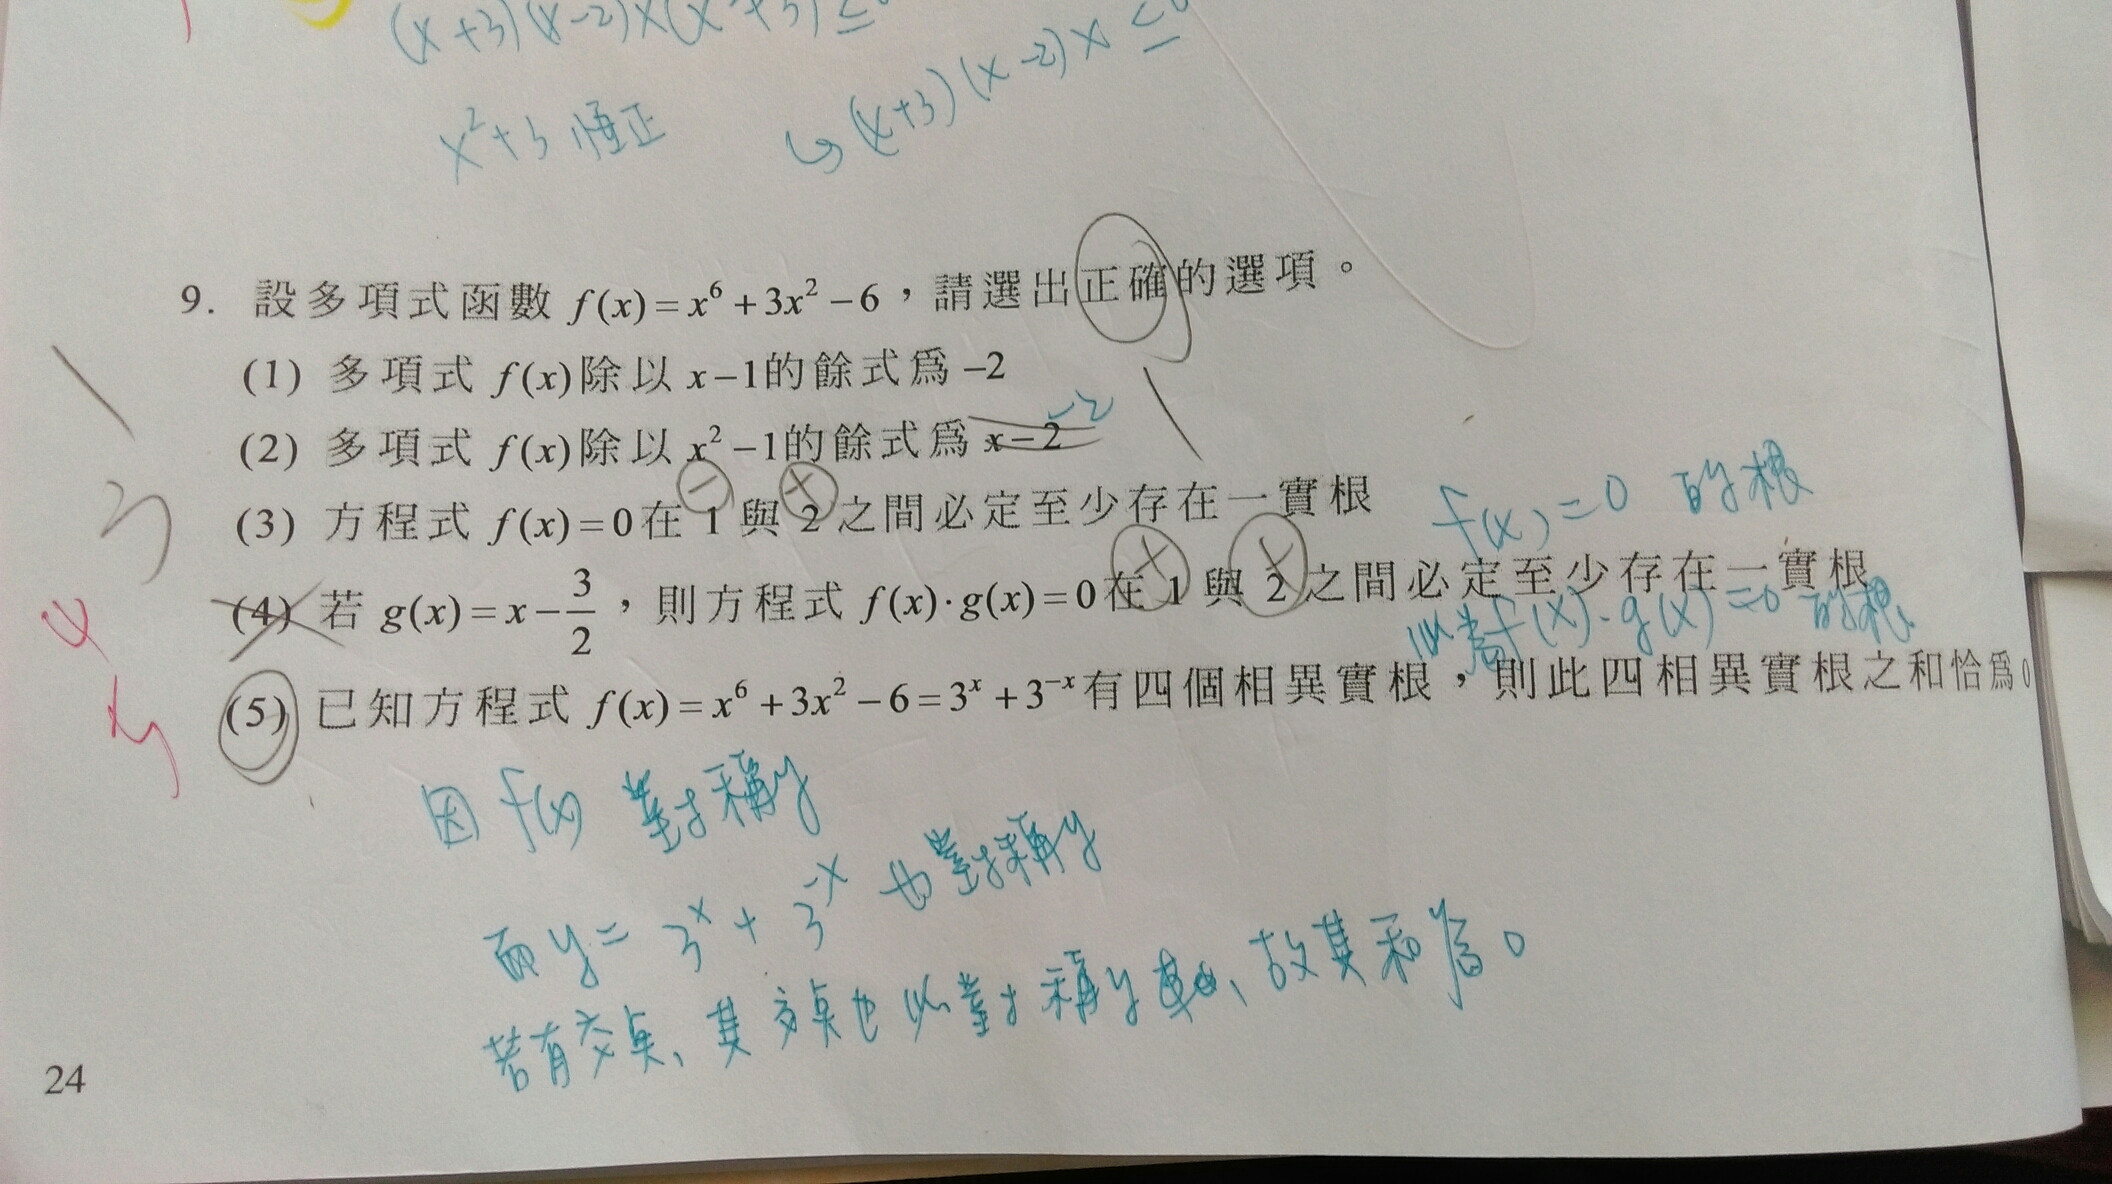 (x+3)(x-2)x(x²+3)≤0
x²+3 恆正
↳(x+3)(x-2)x≤0
9. 設多項式函數 f(x)=x⁶+3x²−6，請選出正確的選項。
(1) 多項式 f(x)除以 x−1的餘式為 −2
(2) 多項式 f(x)除以 x²−1的餘式為 x−2
-2
(3) 方程式 f(x)=0在 1 與 2 之間必定至少存在一實根
f(x)=0 的根
(4) 若 g(x)=x−3/2，則方程式 f(x)·g(x)=0在 1 與 2 之間必定至少存在一實根
必為f(x)·g(x)=0 的根
(5) 已知方程式 f(x)=x⁶+3x²−6=3ˣ+3⁻ˣ有四個相異實根，則此四相異實根之和恰為0
1
3
4
5
因 f(x) 對稱y
而y=3ˣ+3⁻ˣ 也對稱y
若有交點、其交點也必對稱y軸、故其和為0
24